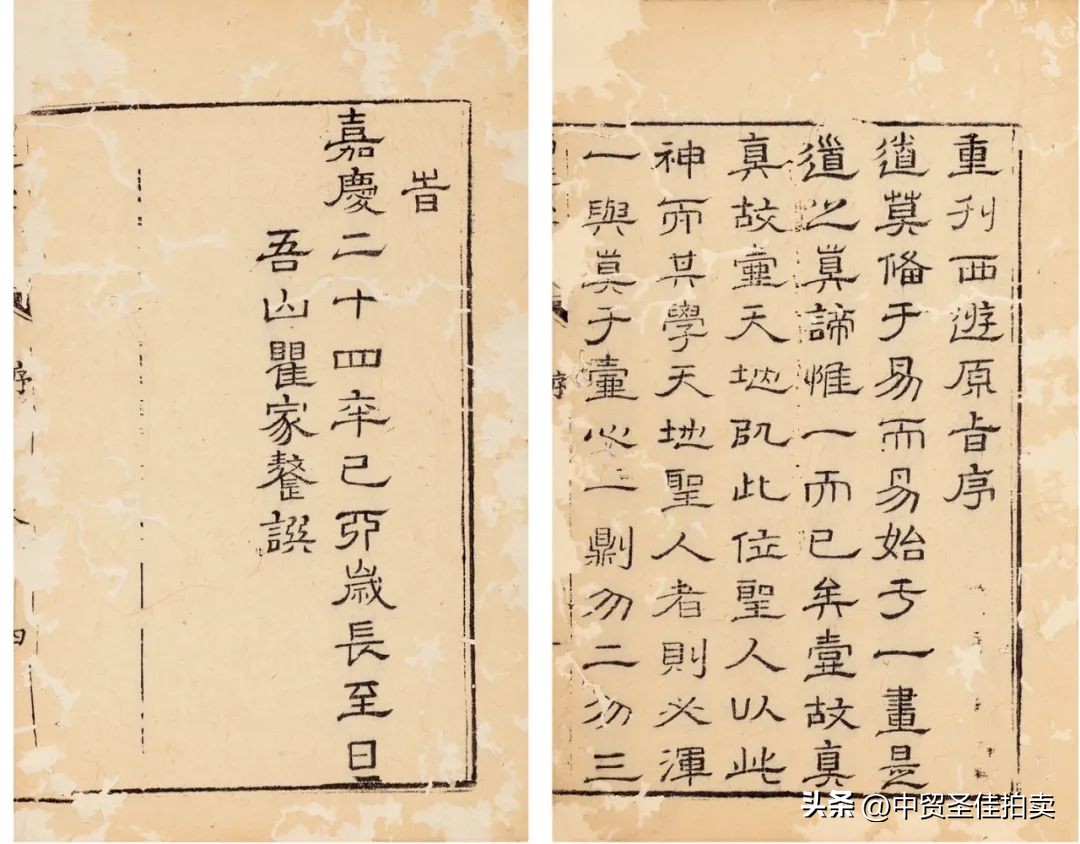 重刊西遊原旨序
道莫備于易而易始于一畫是
道之真諦惟一而已矣壹故真
真故壹天地以此位聖人以此
神而其學天地聖人者則必渾
一與真于壹必一則勿二勿三
序
旨
嘉慶二十四年己卯歲長至日
吾山瞿家鏊撰
序
四
头条 @中贸圣佳拍卖